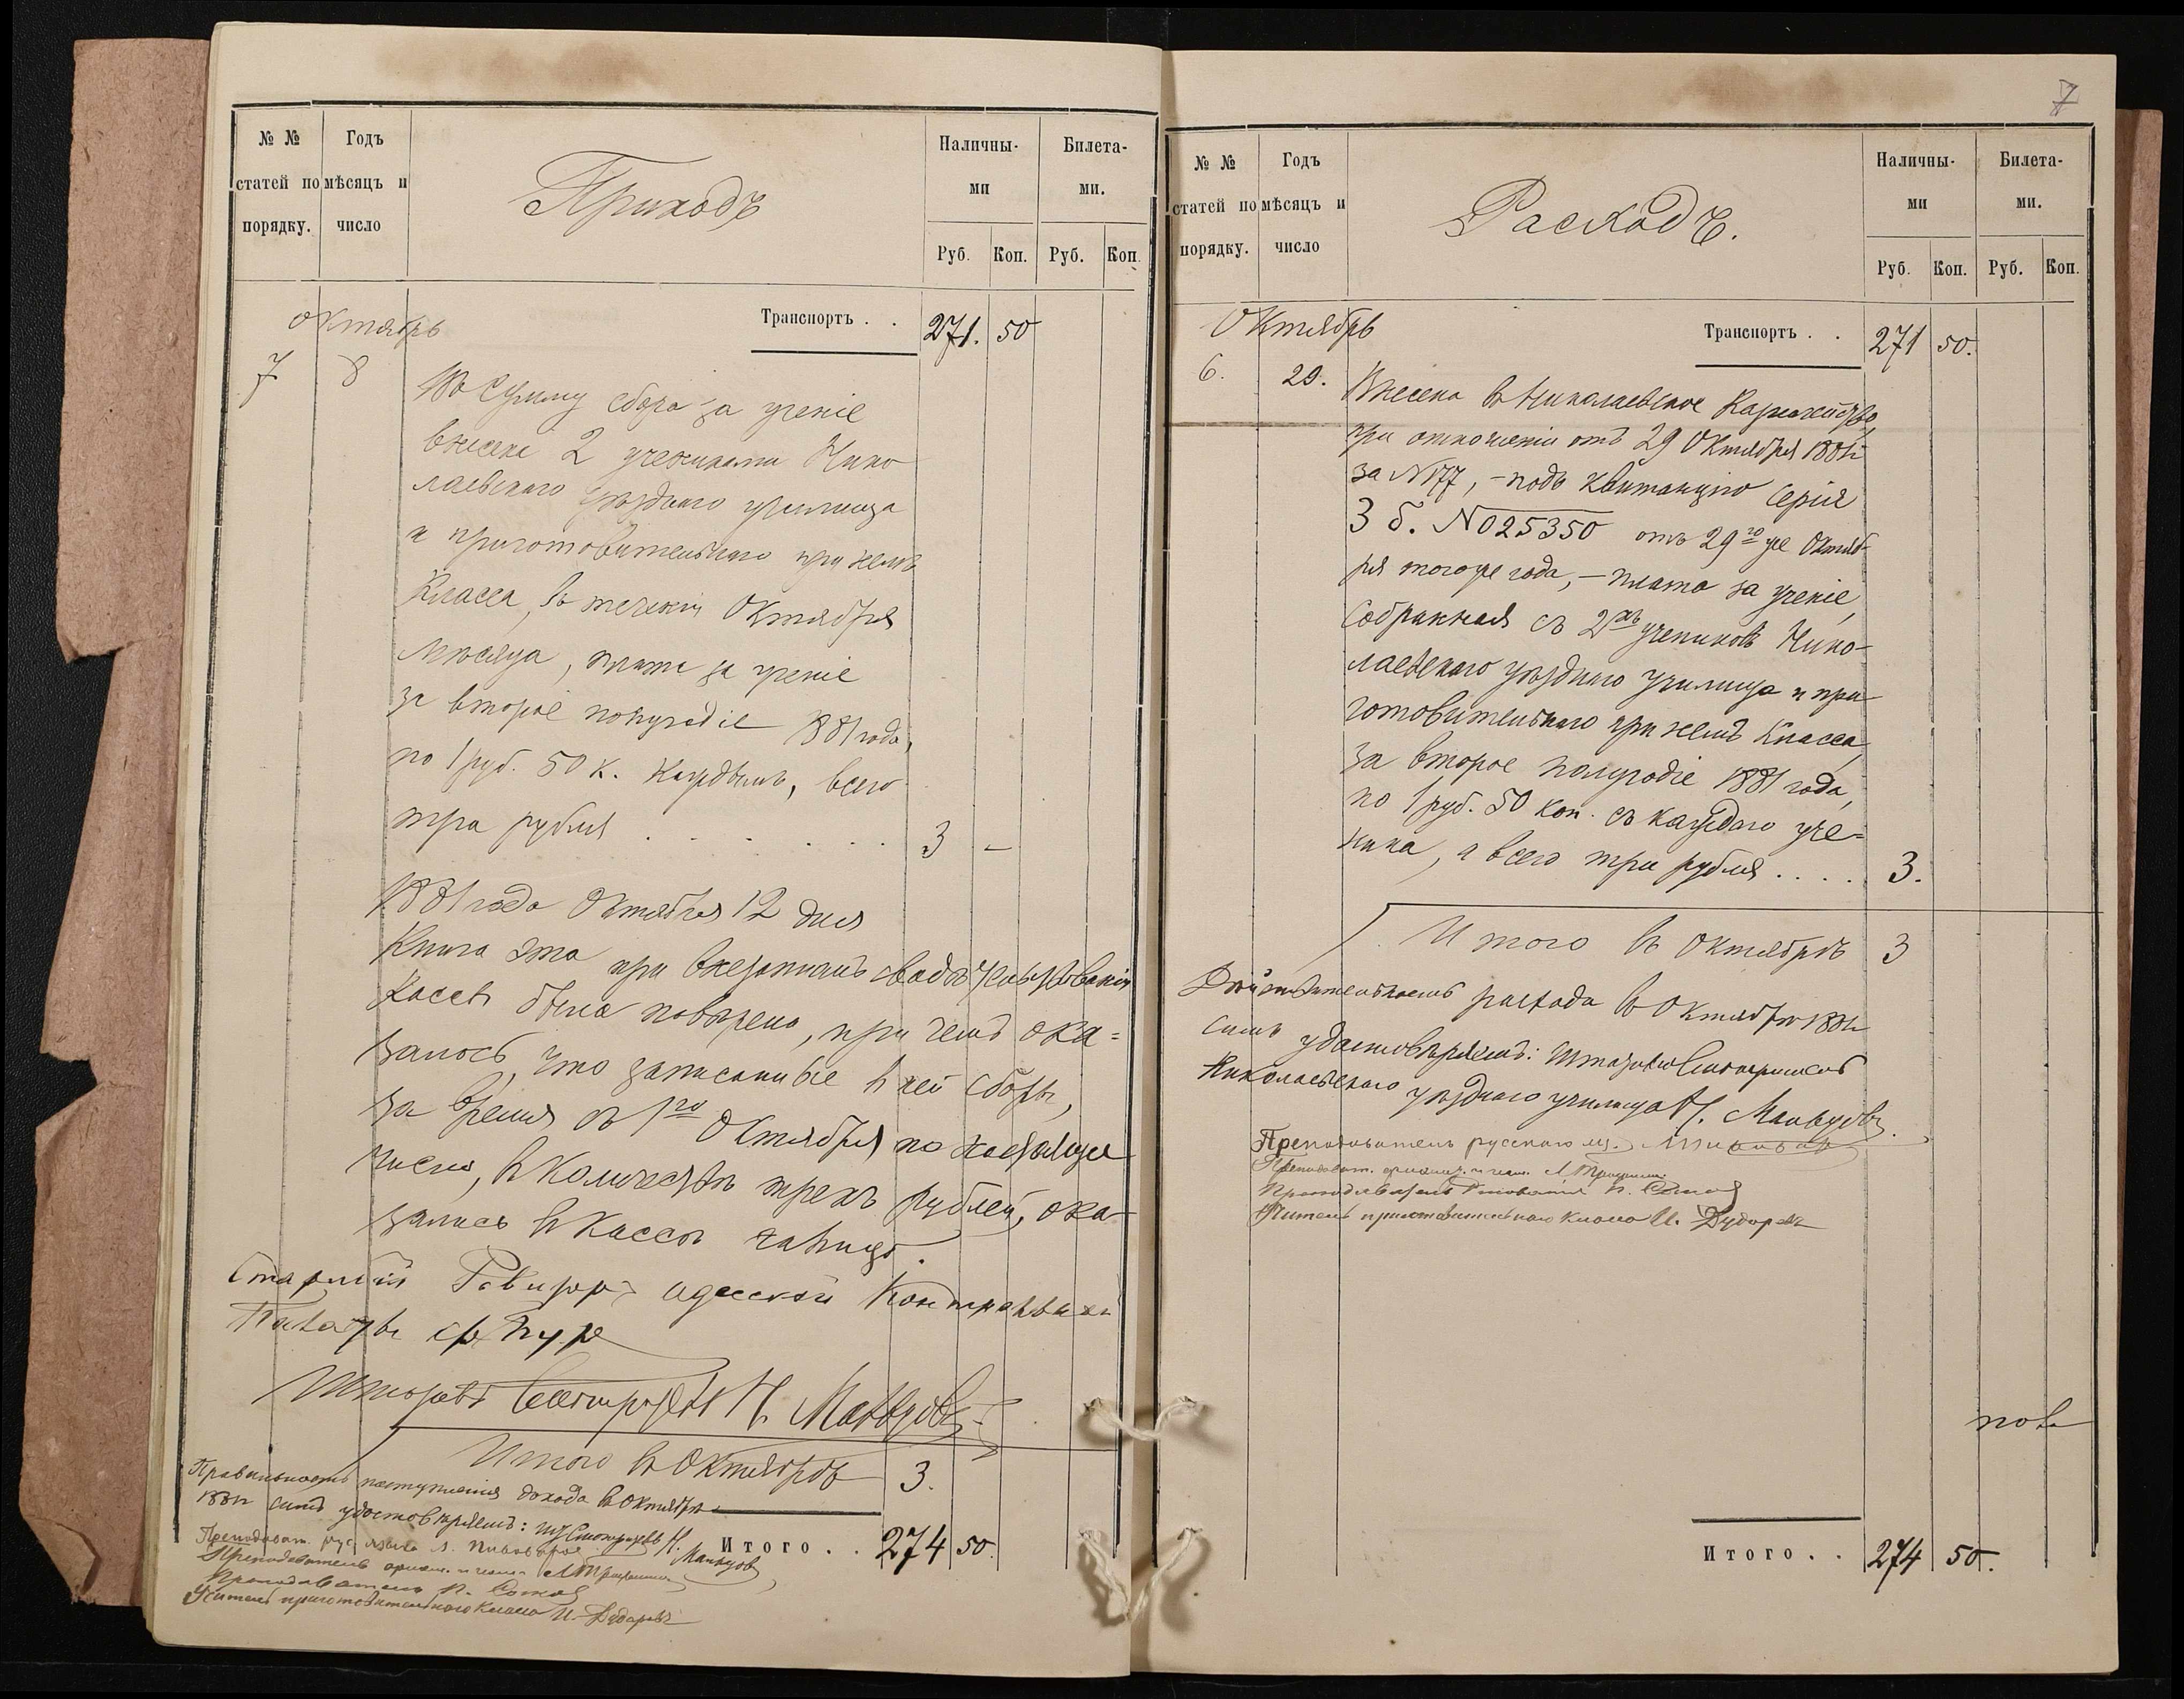 № №
статей по
порядку.
Годъ
мѣсяцъ и
число
Приходъ
Наличны-
ми
Билета-
ми.
Руб. Коп. Руб. Коп.
Октябрь
Транспортъ . . 271. 50
7 8
Въ сумму сбора за ученіе
внесено 2 учениками Нико
лаевскаго уѣзднаго училища
и приготовительнаго при немъ
класса, въ теченіи Октября
мѣсяца, плата за ученіе
за второе полугодіе 1881 года,
по 1 руб. 50 к. каждымъ, всего
три рубля . . . . . . 3 –
1881 года Октября 12 дня
Книга эта при внезапномъ свидѣтельствованіи
кассы была повѣрена, при чемъ ока=
залось, что записанные въ ней сборы,
за время съ 1го Октября по настоящее
число, въ количествѣ трехъ рублей, ока-
зались въ кассѣ
Старшій Ревизоръ Одесской Контрольной
Палаты
Штатный Смотритель Н. Мальцовъ
Итого въ Октябрѣ 3.
Правильность поступленія дохода въ Октябрѣ
1881 г. симъ удостовѣряемъ: Шт. Смотритель Н. Мальцовъ
Преподават. рус. языка
Преподаватель ариѳм. и геом.
Преподаватель
Учитель приготовительнаго класса И. Дударевъ
Итого . . 274 50.
7
№ №
статей по
порядку.
Годъ
мѣсяцъ и
число
Расходъ.
Наличны-
ми
Билета-
ми.
Руб. Коп. Руб. Коп.
Октябрь
Транспортъ . . 271 50.
6. 29. Внесена въ Николаевское Казначейство,
при отношеніи отъ 29 Октября 1881 г.
за № 177, – подъ квитанцію серія
3 б. № 025350 отъ 29го же Октяб-
ря того же года, – плата за ученіе,
собранная съ 2хъ учениковъ Нико-
лаевскаго уѣзднаго училища и при-
готовительнаго при немъ класса,
за второе полугодіе 1881 года,
по 1 руб. 50 коп. съ каждаго уче=
ника, а всего три рубля . . . . 3.
Итого въ Октябрѣ 3
Дѣйствительность расхода въ Октябрѣ 1881 г.
симъ удостовѣряемъ: Штатный Смотритель
Николаевскаго уѣзднаго училища Н. Мальцовъ.
Преподаватель русскаго яз.
Преподават. ариѳм. и геом.
Преподаватель
Учитель приготовительнаго класса И. Дударевъ
Итого . . 274 50.